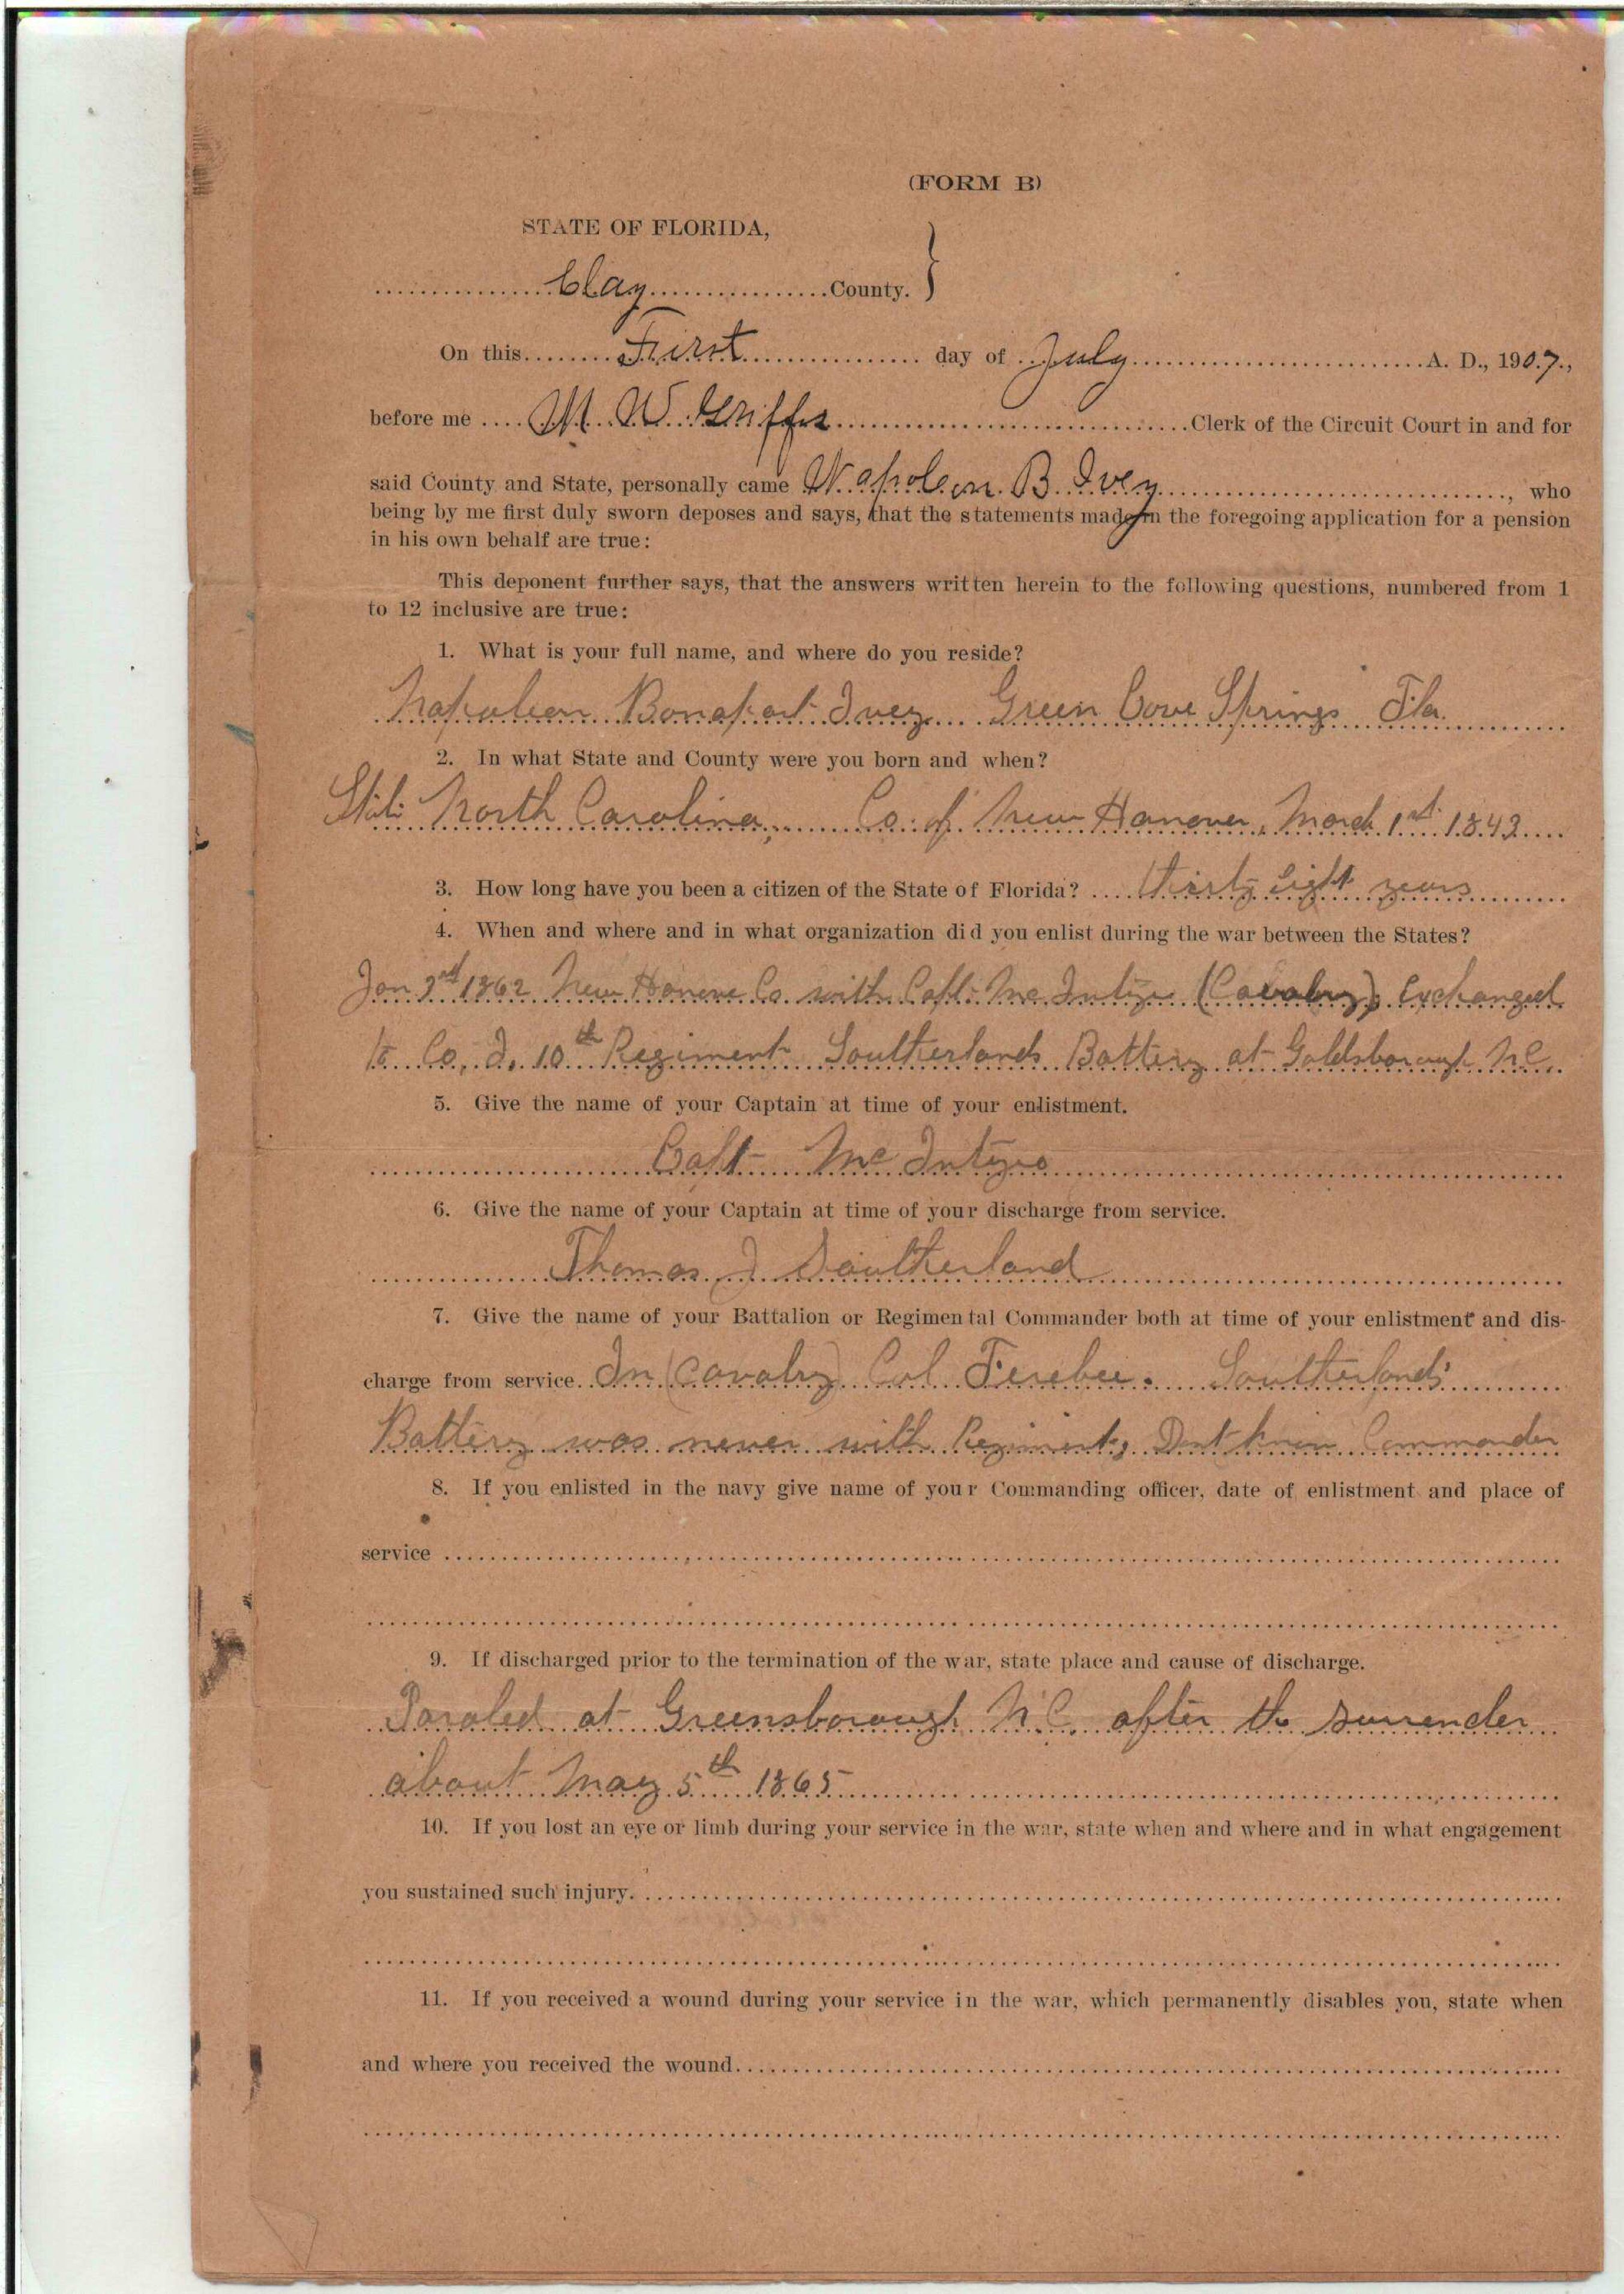 (FORM B)
STATE OF FLORIDA,
Clay County.
On this First day of July A. D., 1907.,
before me M. W. Griffis Clerk of the Circuit Court in and for
said County and State, personally came Napoleon B. Ivey, who
being by me first duly sworn deposes and says, that the statements made in the foregoing application for a pension
in his own behalf are true:
This deponent further says, that the answers written herein to the following questions, numbered from 1
to 12 inclusive are true:
1. What is your full name, and where do you reside?
Napolien Bonapart Ivey Green Cove Springs Fla
2. In what State and County were you born and when?
State North Carolina, Co. of New Hanover, March 1st 1843
3. How long have you been a citizen of the State of Florida? thirty eight years
4. When and where and in what organization did you enlist during the war between the States?
Jan 3rd 1862 New Hanover Co. with Capt. McIntyre (Cavalry), Exchanged
to Co. I, 10th Regiment Southerlands Battery at Goldsborough N.C.
5. Give the name of your Captain at time of your enlistment.
Capt McIntyre
6. Give the name of your Captain at time of your discharge from service.
Thomas J Southerland
7. Give the name of your Battalion or Regimental Commander both at time of your enlistment and dis-
charge from service. In (Cavalry) Col. Ferebee. Southerlands
Battery was never with Regiment, Dont know Commander
8. If you enlisted in the navy give name of your Commanding officer, date of enlistment and place of
service
9. If discharged prior to the termination of the war, state place and cause of discharge.
Paroled at Greensborough N.C. after the surrender
about May 5th 1865
10. If you lost an eye or limb during your service in the war, state when and where and in what engagement
you sustained such injury.
11. If you received a wound during your service in the war, which permanently disables you, state when
and where you received the wound.